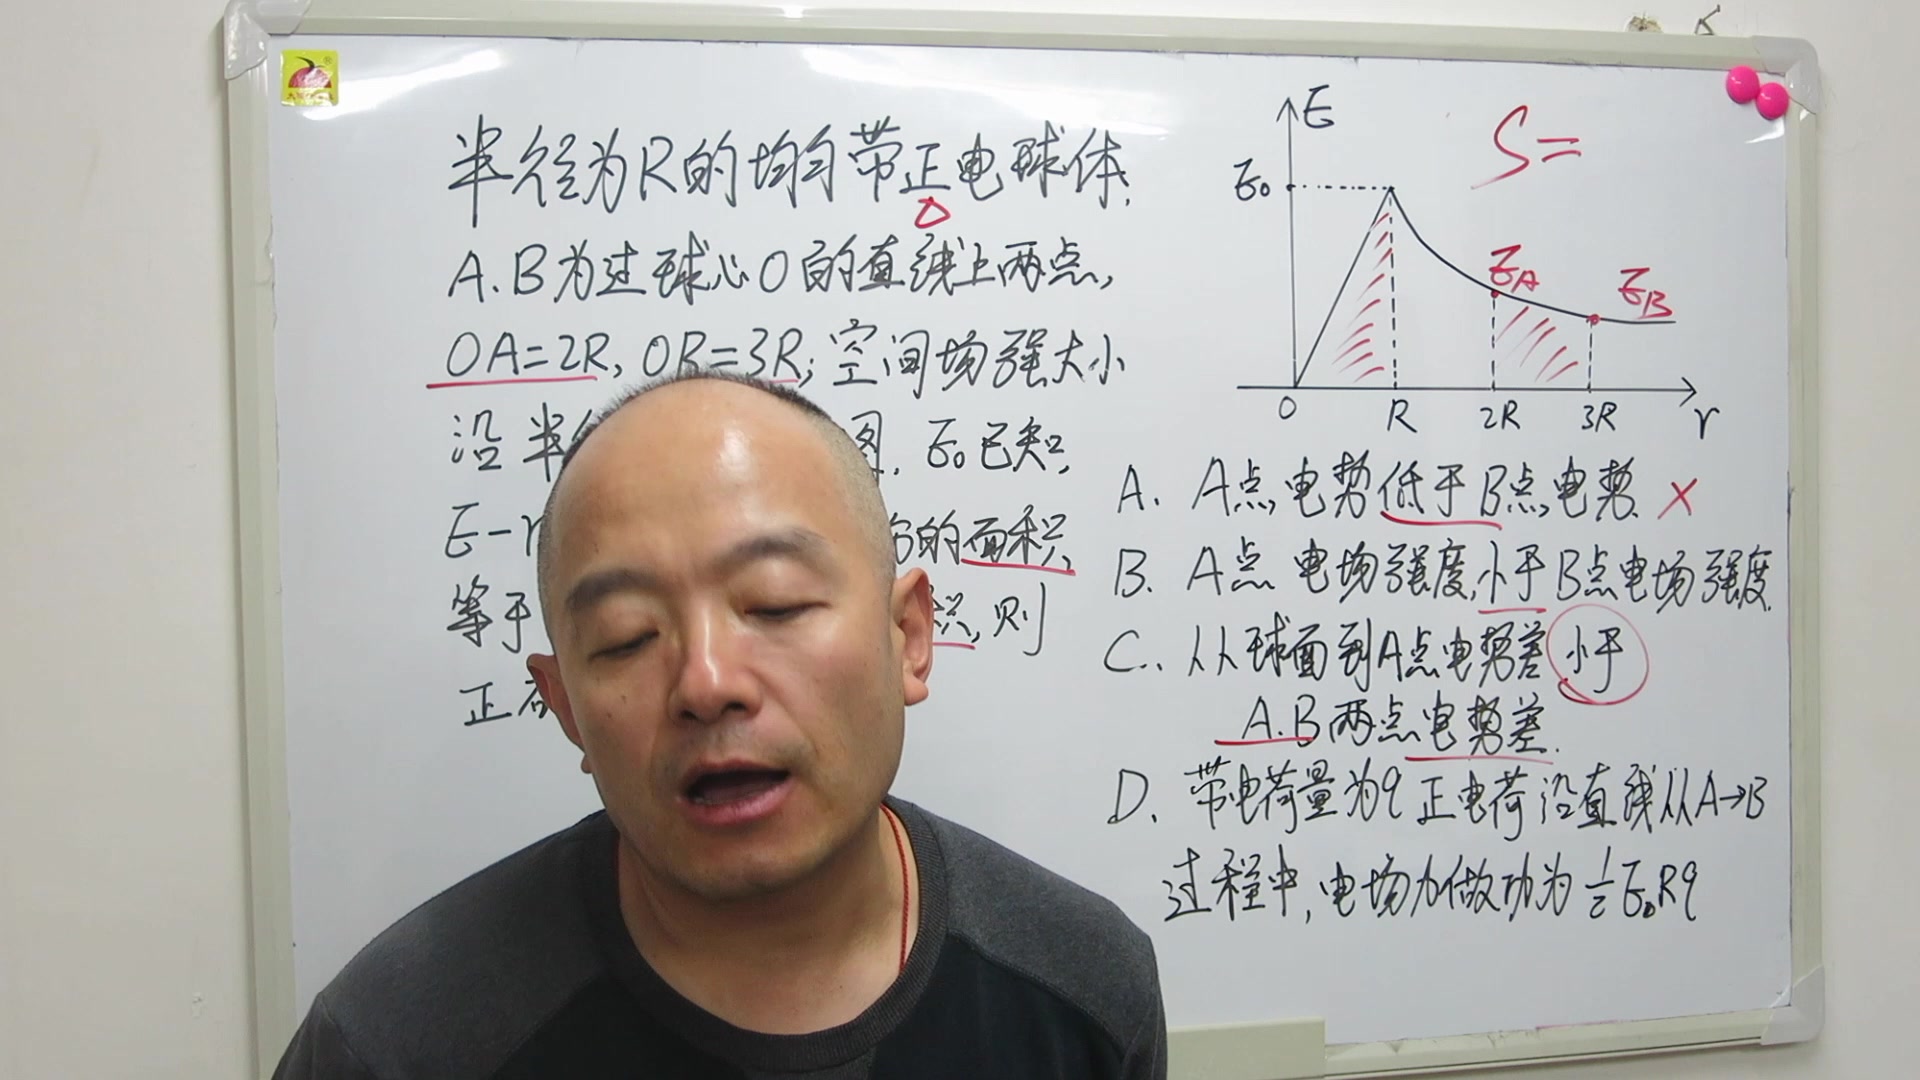 半径为R的均匀带正电球体,
A.B为过球心O的直线上两点,
OA=2R, OB=3R; 空间场强大小
沿半 图. E₀已知,
E-r 的面积
等于 积, 则
正确
E
E₀
S=
E_A
E_B
O R 2R 3R r
A. A点电势低于B点电势. ×
B. A点电场强度小于B点电场强度.
C. 从球面到A点电势差小于
A.B两点电势差.
D. 带电荷量为q正电荷沿直线从A→B
过程中, 电场力做功为½E₀Rq